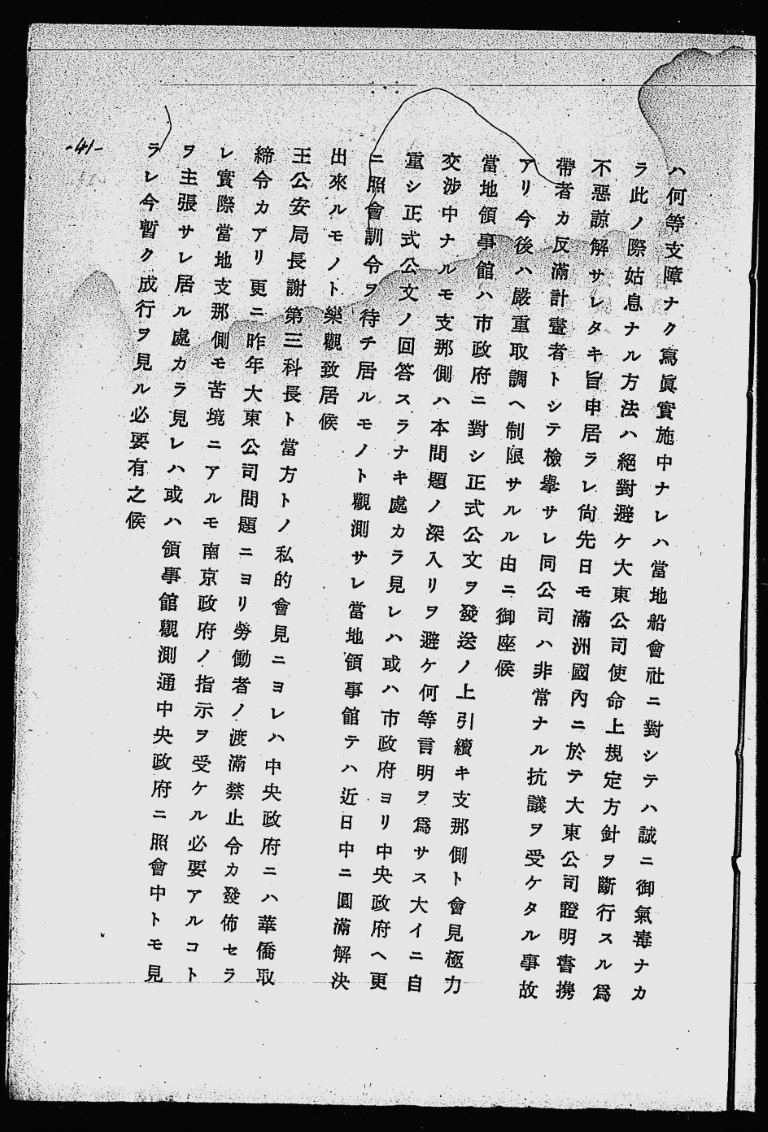 ハ何等支障ナク寫眞實施中ナレハ當地船會社ニ對シテハ誠ニ御氣毒ナカ
ラ此ノ際姑息ナル方法ハ絕對避ケ大東公司使命上規定方針ヲ斷行スル爲
不惡諒解サレタキ旨申居ラレ尙先日モ滿洲國內ニ於テ大東公司證明書携
帶者カ反滿計畫者トシテ檢擧サレ同公司ハ非常ナル抗議ヲ受ケタル事故
アリ今後ハ嚴重取調ヘ制限サルル由ニ御座候
當地領事館ハ市政府ニ對シ正式公文ヲ發送ノ上引續キ支那側ト會見極力
交涉中ナルモ支那側ハ本問題ノ深入リヲ避ケ何等言明ヲ爲サス大イニ自
重シ正式公文ノ回答スラナキ處カラ見レハ或ハ市政府ヨリ中央政府ヘ更
ニ照會訓令ヲ待チ居ルモノト觀測サレ當地領事館テハ近日中ニ圓滿解決
出來ルモノト樂觀致居候
王公安局長謝第三科長ト當方トノ私的會見ニヨレハ中央政府ニハ華僑取
締令カアリ更ニ昨年大東公司問題ニヨリ勞働者ノ渡滿禁止令カ發佈セラ
レ實際當地支那側モ苦境ニアルモ南京政府ノ指示ヲ受ケル必要アルコト
ヲ主張サレ居ル處カラ見レハ或ハ領事館觀測通中央政府ニ照會中トモ見
ラレ今暫ク成行ヲ見ル必要有之候
-41-